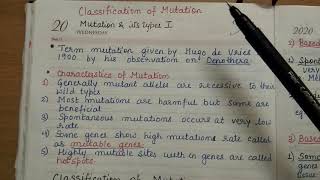 Classification of Mutation
20
WEDNESDAY
Mutation & its types I
• Term mutation given by Hugo de Vries
1900 by his observation on Oenothera
• Characteristics of Mutation
1) Generally mutant alleles are recessive to their
wild types
2) Most mutations are harmful but some are
beneficial
3) Spontaneous mutations occurs at very low
rate
4) Some genes show high mutations rate called
as mutable genes
5) Highly mutable sites with in genes are called
hotspots.
Classification of Mutation
2020
2) Based
Spont
very
Me
1) So
genes
tissue